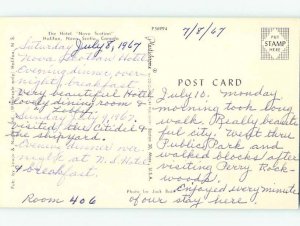 The Hotel "Nova Scotian"
Halifax, Nova Scotia, Canada
P50994
7/8/67
PLACE
STAMP
HERE
POST CARD
Saturday July 8, 1967
Nova Scotian Hotel
Evening dinner over
night & breakfast
very beautiful Hotel
lovely dining room &
Sunday July 9, 1967
visited the Citadel &
the shipyard.
Evening dinner over
night at N.S. Hotel
& breakfast.
Room 406
July 10. Monday
morning took long
walk. Really beauti
ful city. Went thru
Public Park and
walked blocks after
visiting Ferry Rock-
woods.
Enjoyed every minute
of our stay here.